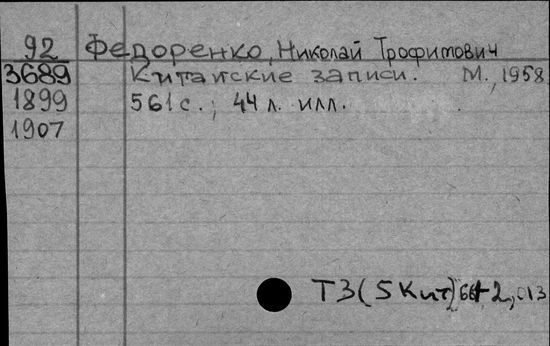 92 Федоренко, Николай Трофимович
3689 Китайские записи. М., 1958
1899 561 с.; 44 л. илл.
1907
Т3(5Кит)